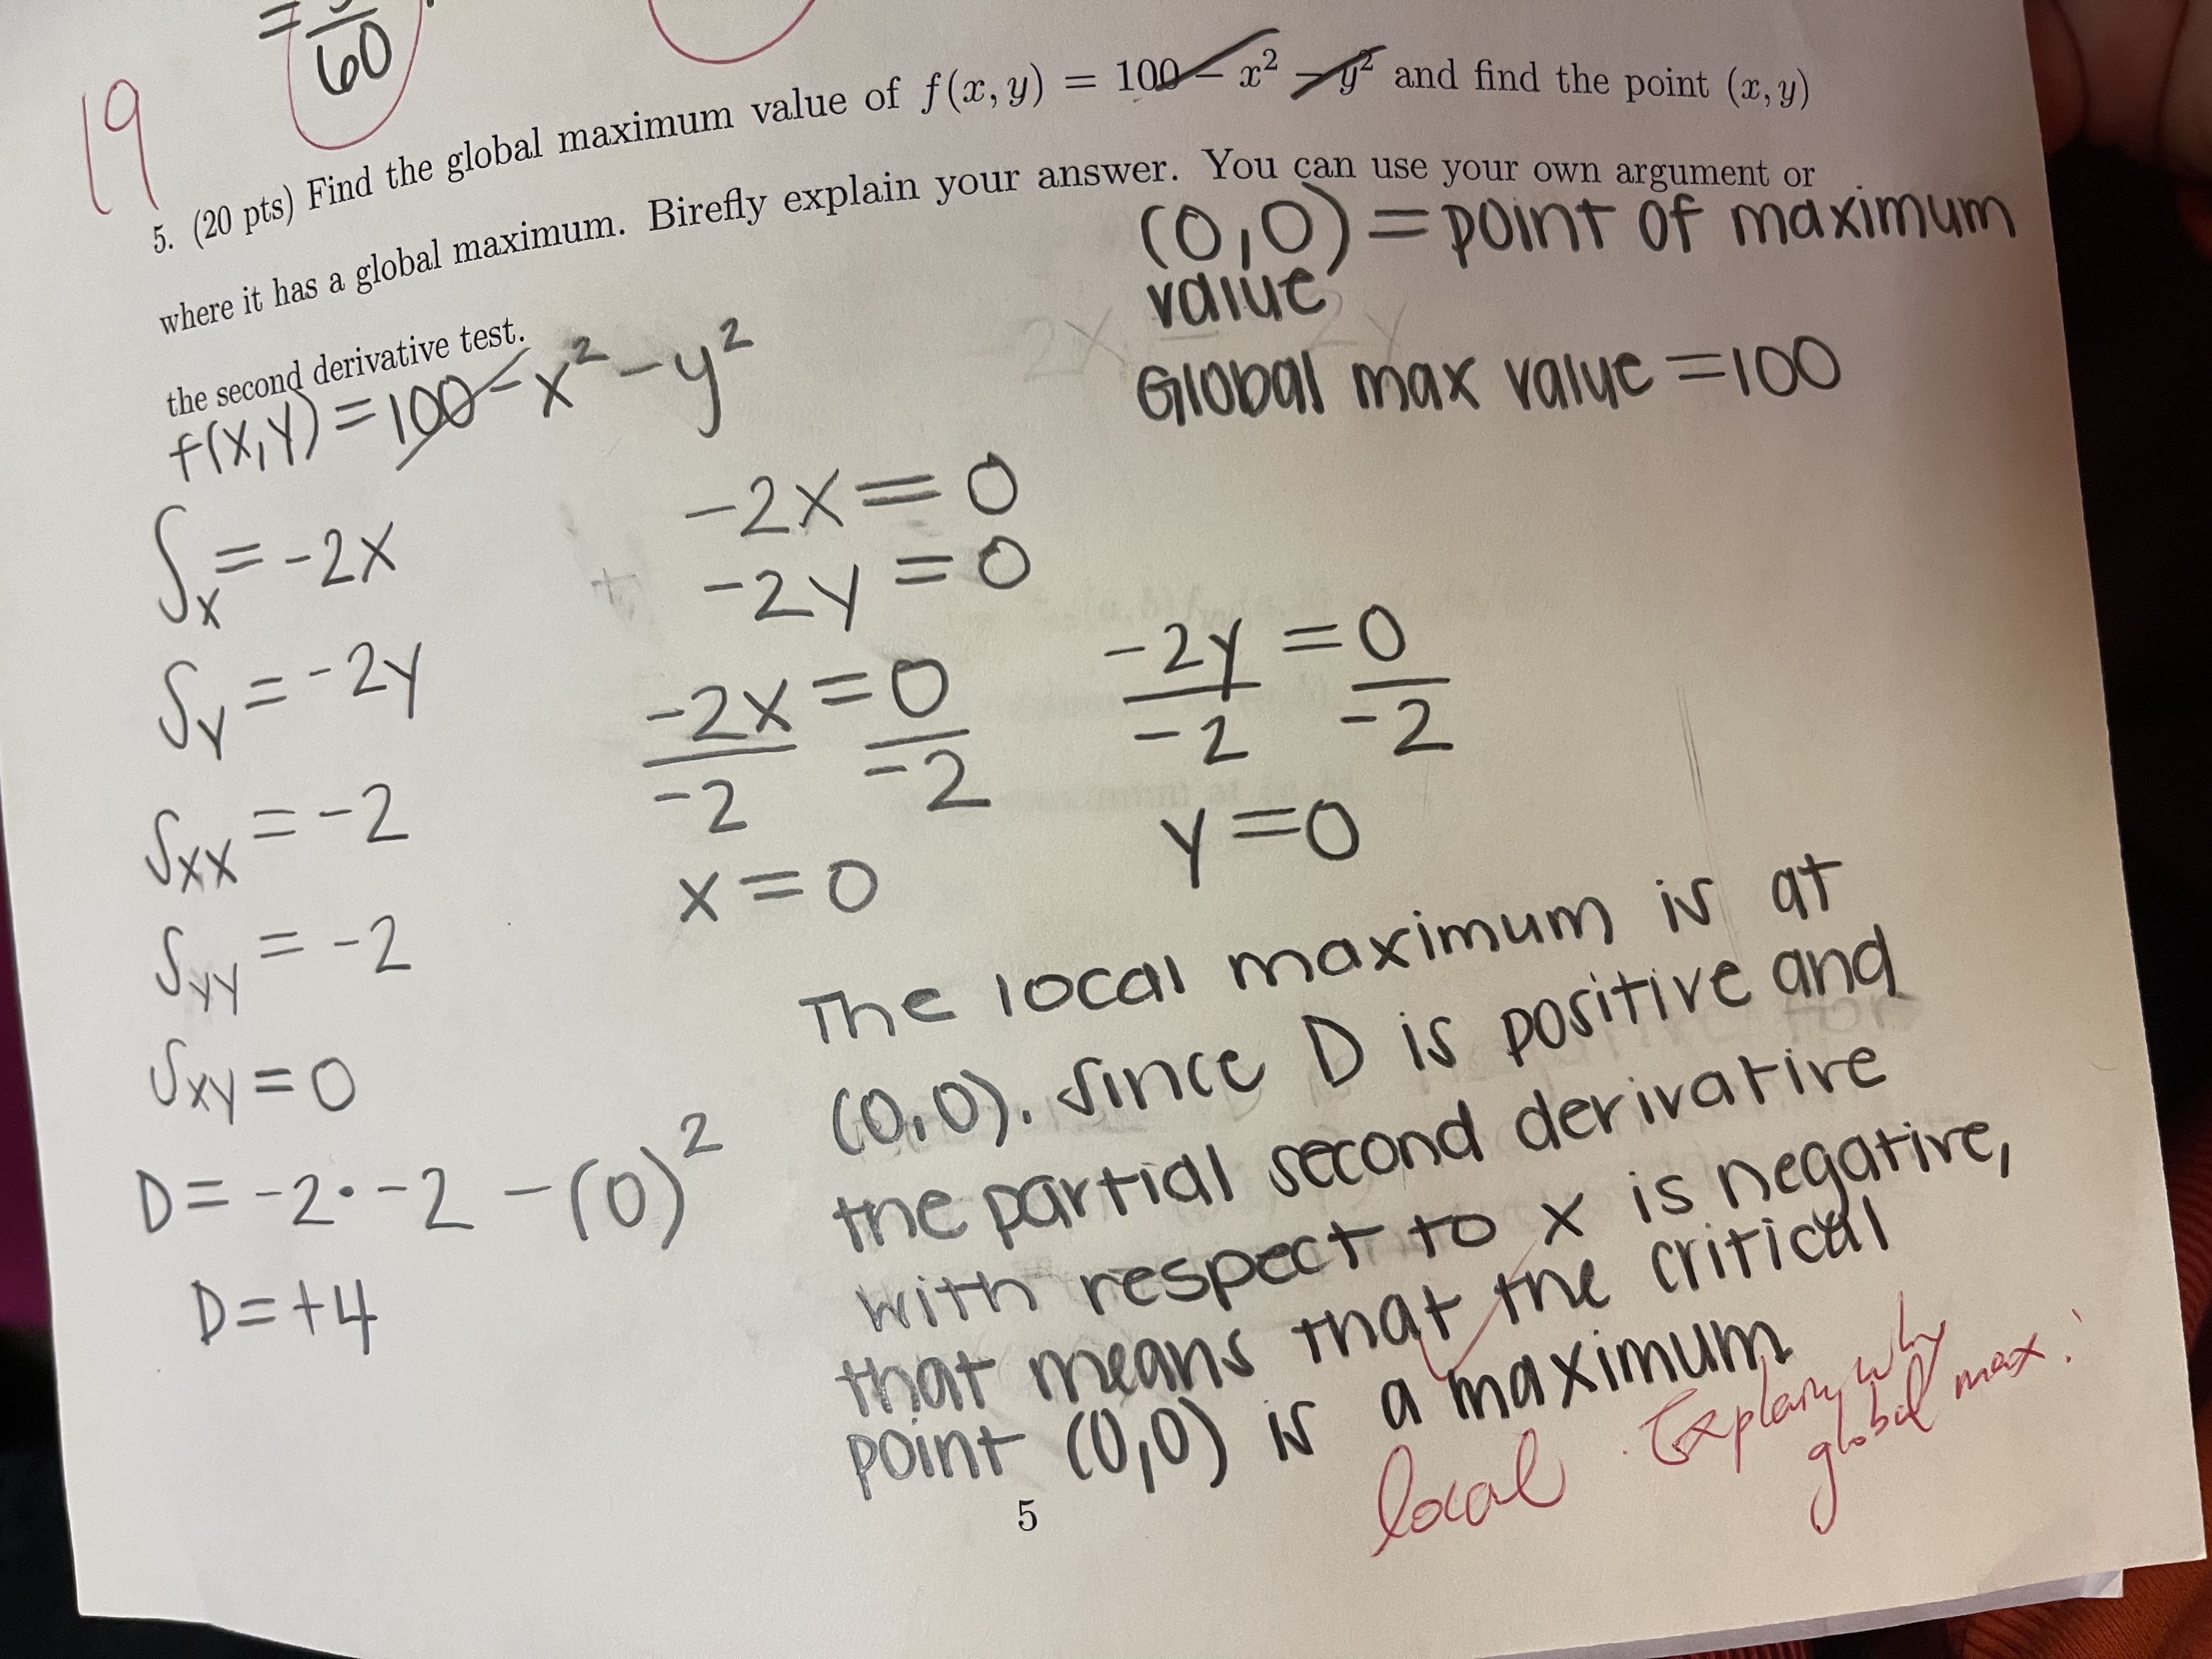 = 
60
19
5. (20 pts) Find the global maximum value of f(x, y) = 100 − x² − y² and find the point (x, y)
where it has a global maximum. Birefly explain your answer. You can use your own argument or
the second derivative test.
(0,0) = point of maximum
value
Global max value = 100
f(x,y) = 100 - x² - y²
∫x = -2x
-2x = 0
-2y = 0
∫y = -2y
-2x = 0
-2 -2
-2y = 0
-2 -2
∫xx = -2
x = 0
y = 0
∫yy = -2
∫xy = 0
D = -2 · -2 - (0)²
D = +4
The local maximum is at
(0,0). Since D is positive and
the partial second derivative
with respect to x is negative,
that means that the critical
point (0,0) is a maximum
local
. Explain why
global max.
5